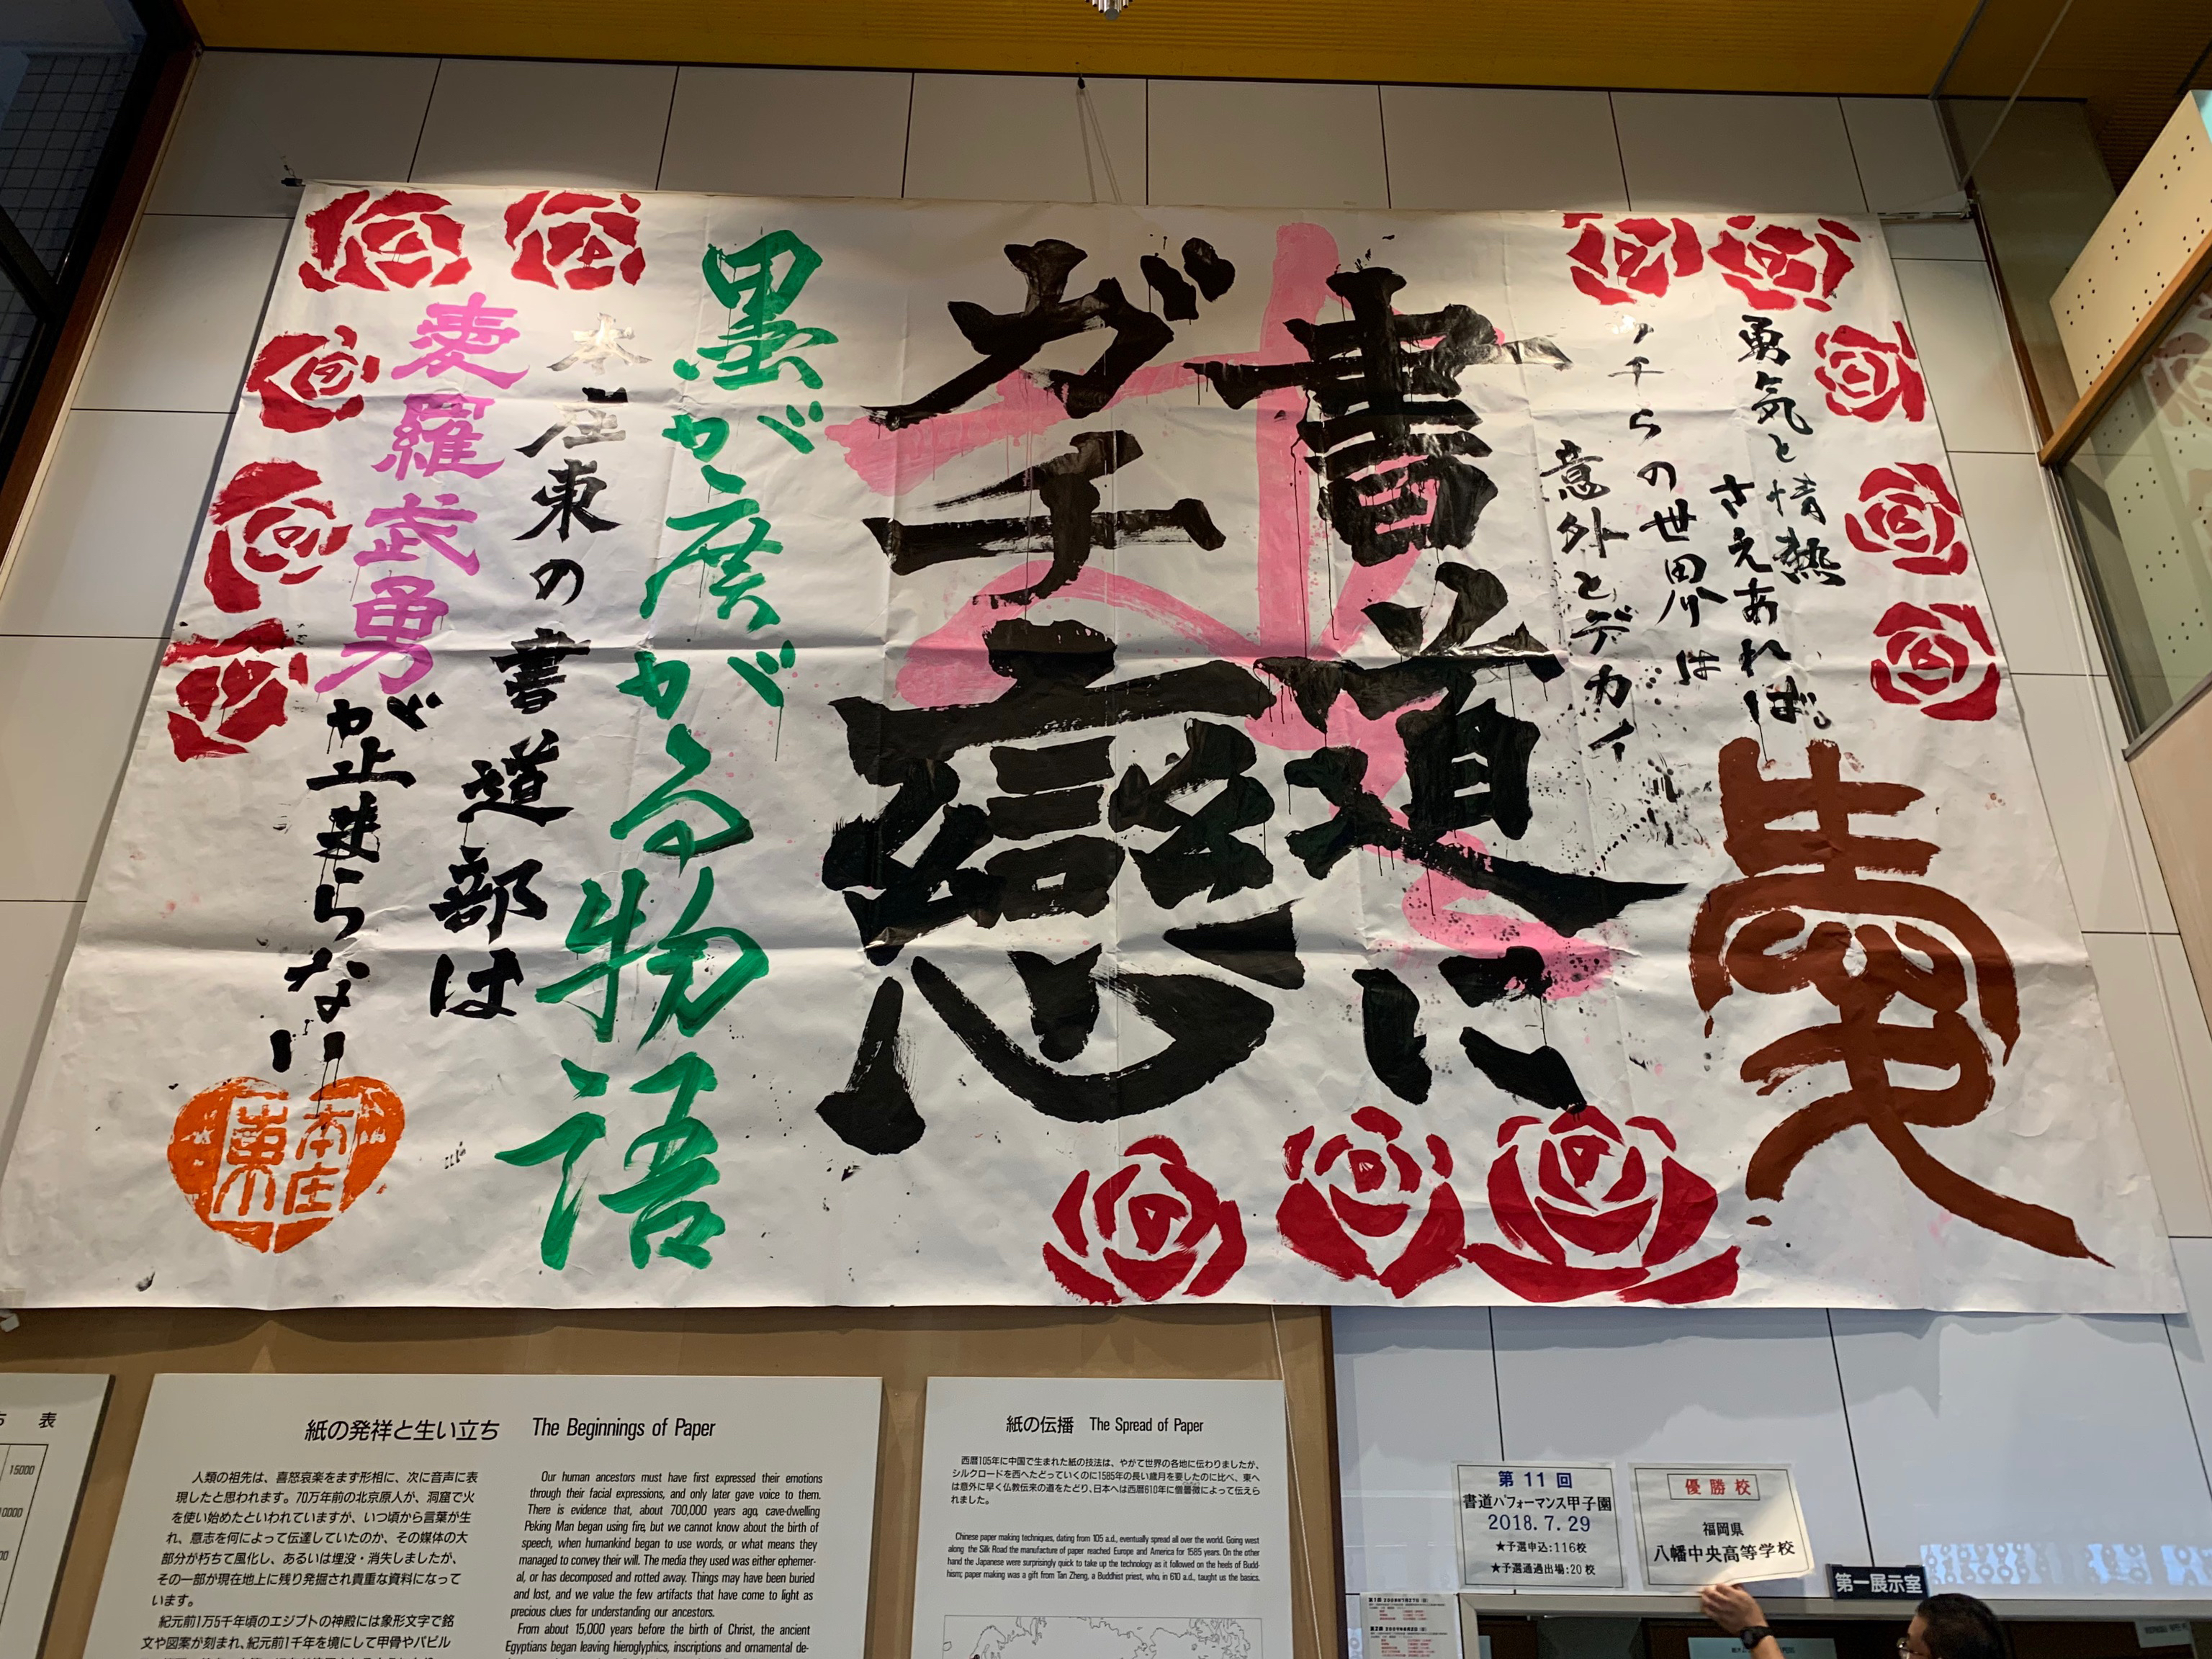 愛
勇気と情熱
さえあれば。
ウチらの世界は
意外とデカイ
書道に
ガチ戀
墨が廣がる物語
本庄東の書道部は
愛羅武勇
が止まらない
本庄
東
表
15000
10000
紙の発祥と生い立ち The Beginnings of Paper
人類の祖先は、喜怒哀楽をまず形相に、次に音声に表
現したと思われます。70万年前の北京原人が、洞窟で火
を使い始めたといわれていますが、いつ頃から言葉が生
れ、意志を何によって伝達していたのか、その媒体の大
部分が朽ちて風化し、あるいは埋没・消失しましたが、
その一部が現在地上に残り発掘され貴重な資料になって
います。
紀元前1万5千年頃のエジプトの神殿には象形文字で銘
文や図案が刻まれ、紀元前1千年を境にして甲骨やパピル
Our human ancestors must have first expressed their emotions
through their facial expressions, and only later gave voice to them.
There is evidence that, about 700,000 years ago, cave-dwelling
Peking Man began using fire, but we cannot know about the birth of
speech, when humankind began to use words, or what means they
managed to convey their will. The media they used was either ephemer-
al, or has decomposed and rotted away. Things may have been buried
and lost, and we value the few artifacts that have come to light as
precious clues for understanding our ancestors.
From about 15,000 years before the birth of Christ, the ancient
Egyptians began leaving hieroglyphics, inscriptions and ornamental de-
紙の伝播 The Spread of Paper
西暦105年に中国で生まれた紙の技法は、やがて世界の各地に伝わりましたが、
シルクロードを西へたどっていくのに1585年の長い歳月を要したのに比べ、東へ
は意外に早く仏教伝来の道をたどり、日本へは西暦610年に僧曇徴によって伝えら
れました。
Chinese paper making techniques, dating from 105 a.d., eventually spread all over the world. Going west
along the Silk Road the manufacture of paper reached Europe and America for 1585 years. On the other
hand the Japanese were surprisingly quick to take up the technology as it followed on the heels of Budd-
hism; paper making was a gift from Tan Zheng, a Buddhist priest, who, in 610 a.d., taught us the basics.
第11回
書道パフォーマンス甲子園
2018.7.29
★予選申込:116校
★予選通過出場:20校
優勝校
福岡県
八幡中央高等学校
第一展示室